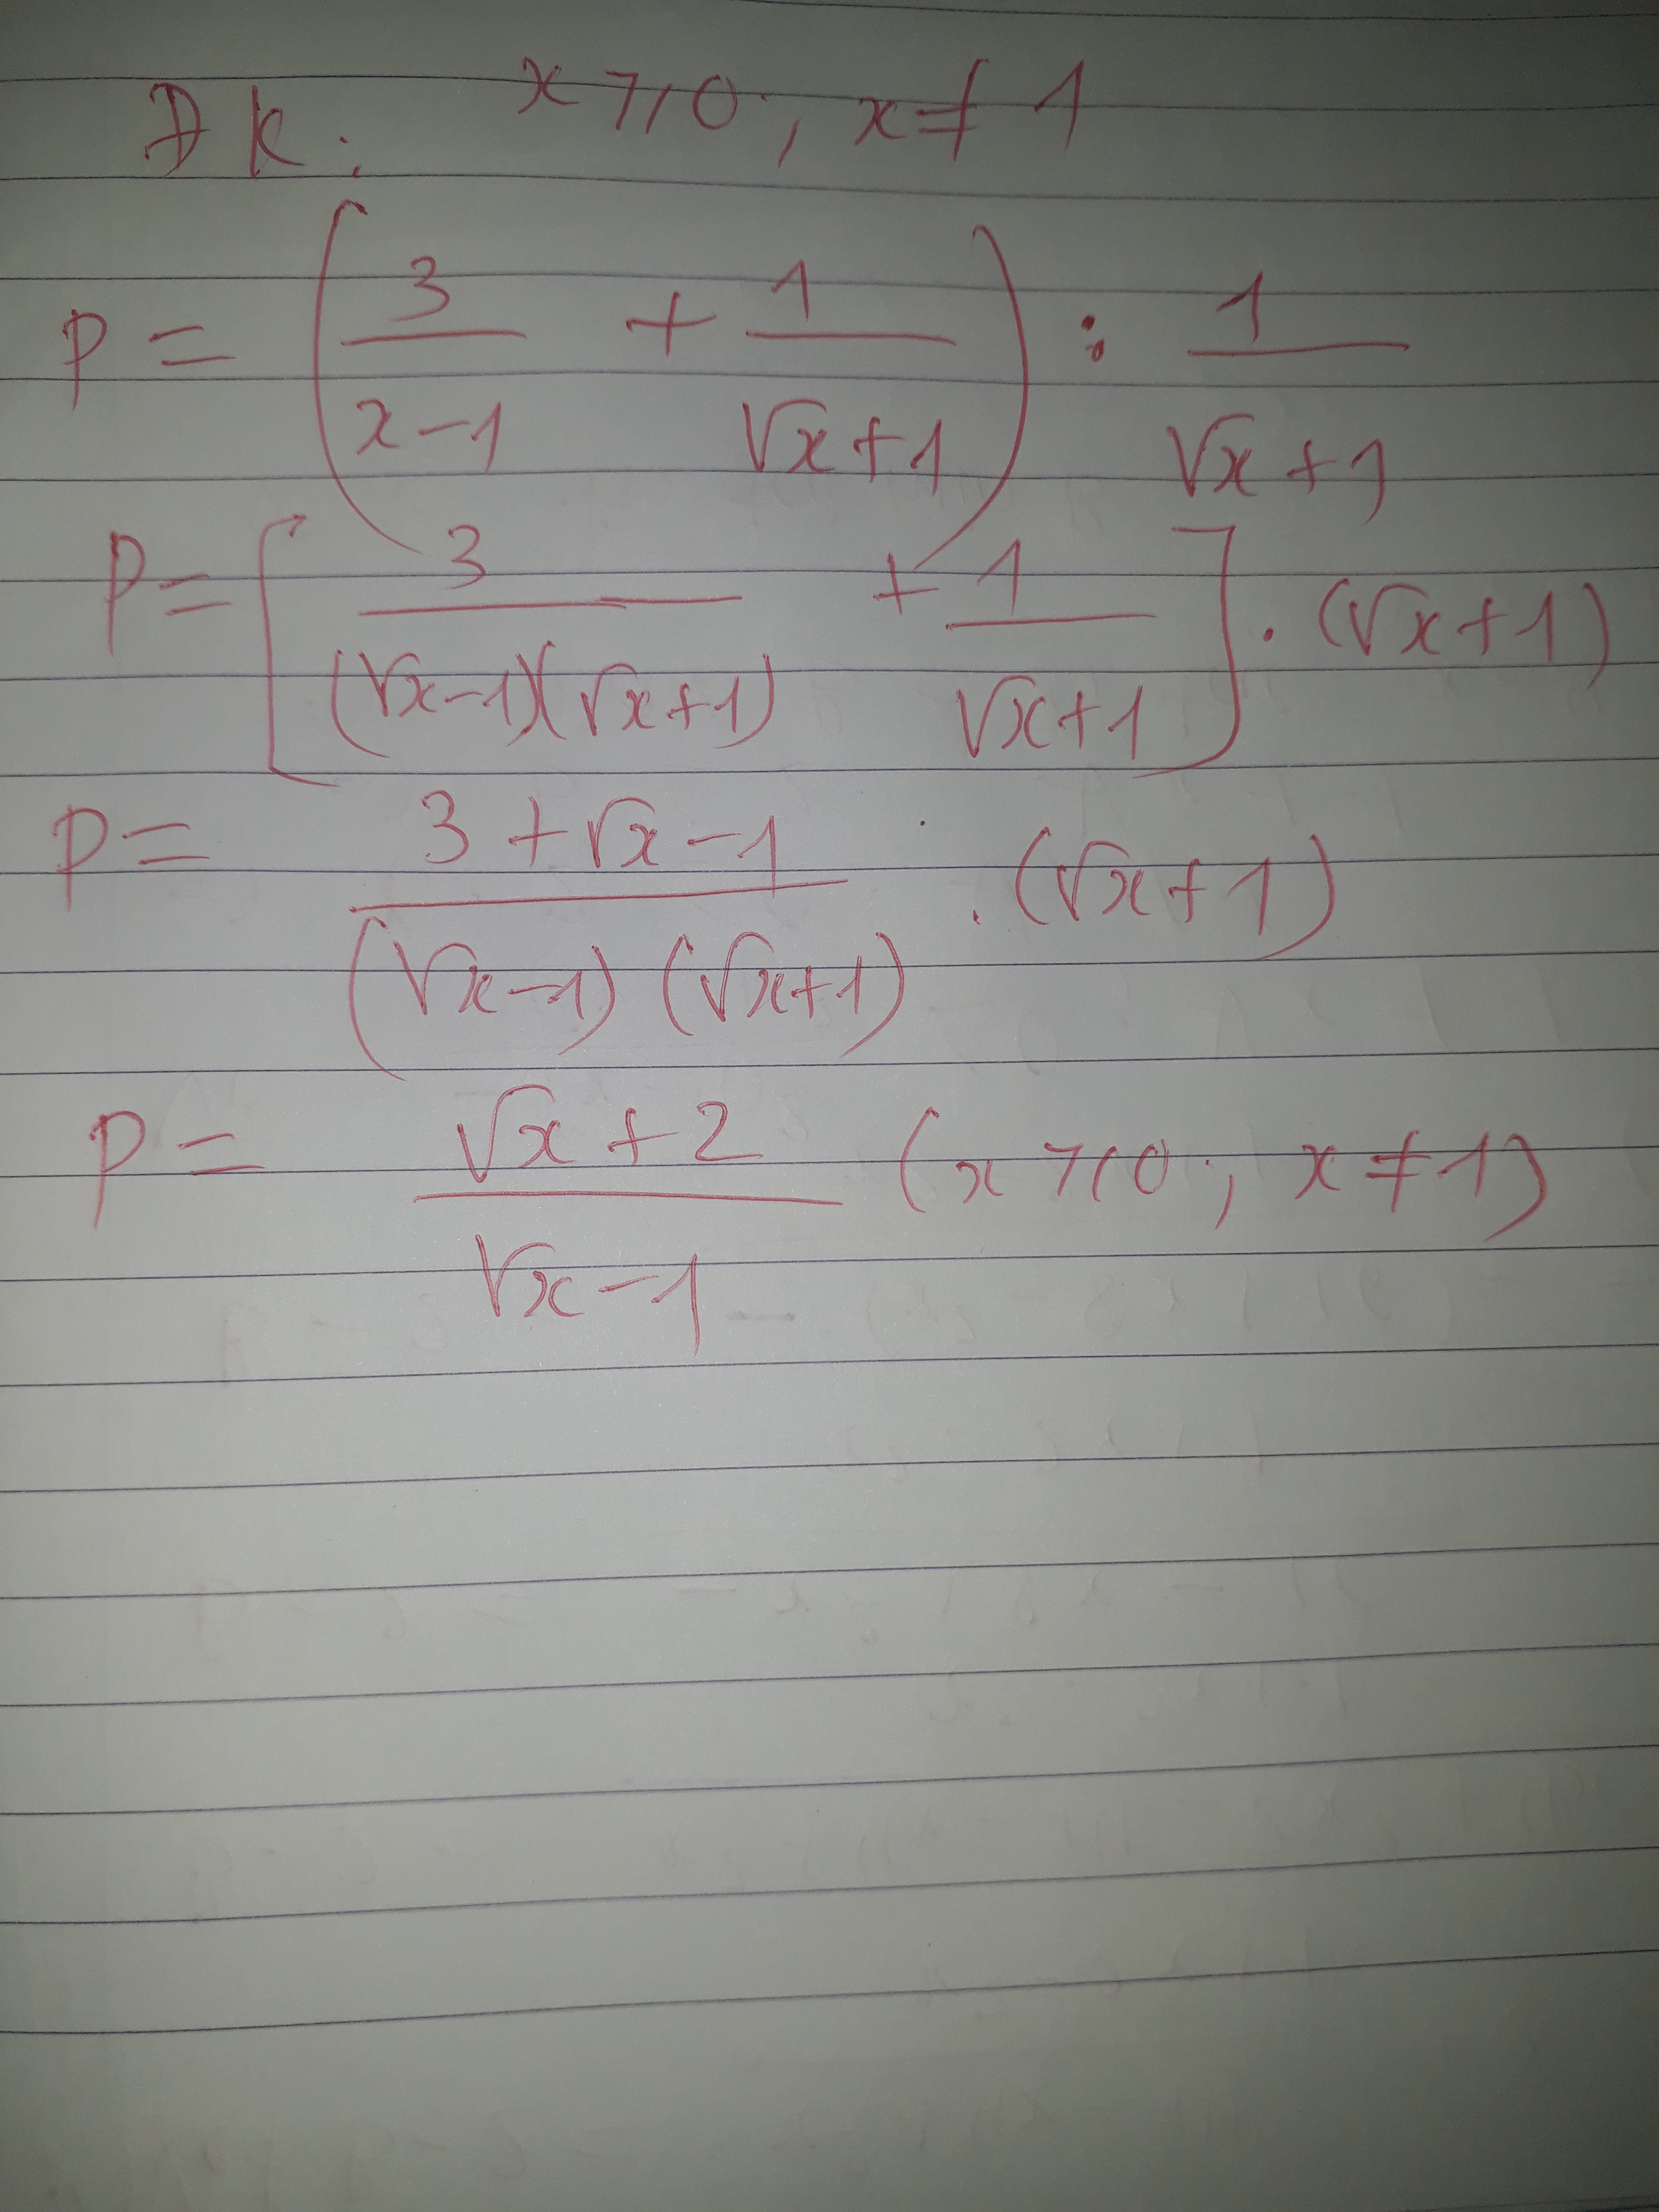 Đk: x ≥ 0; x ≠ 1
P = (3/(x-1) + 1/(√x+1)) : 1/(√x+1)
P = [3/((√x-1)(√x+1)) + 1/(√x+1)] . (√x+1)
P = (3+√x-1)/((√x-1)(√x+1)) . (√x+1)
P = (√x+2)/(√x-1) (x ≥ 0; x ≠ 1)